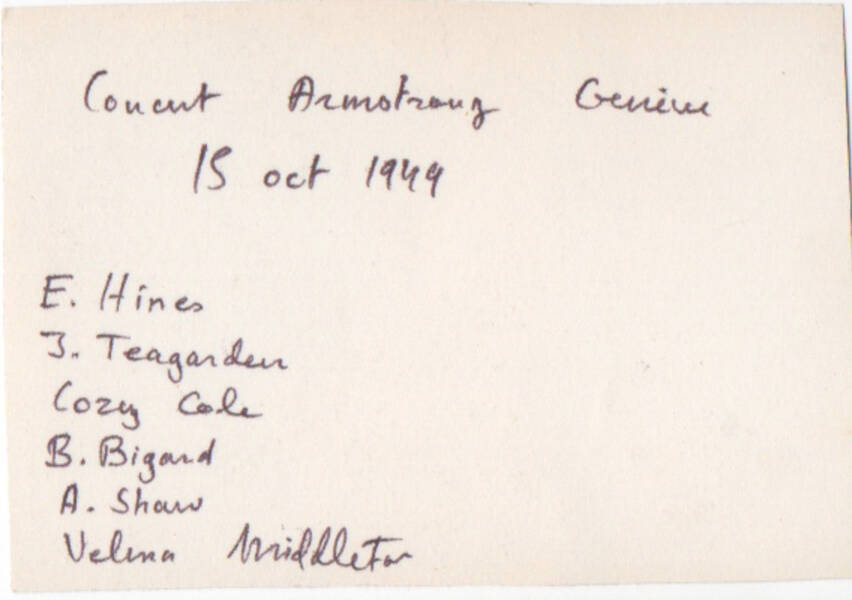 Concert Armstrong Genève
15 oct 1949
E. Hines
J. Teagarden
Cozy Cole
B. Bigard
A. Shaw
Velma Middleton